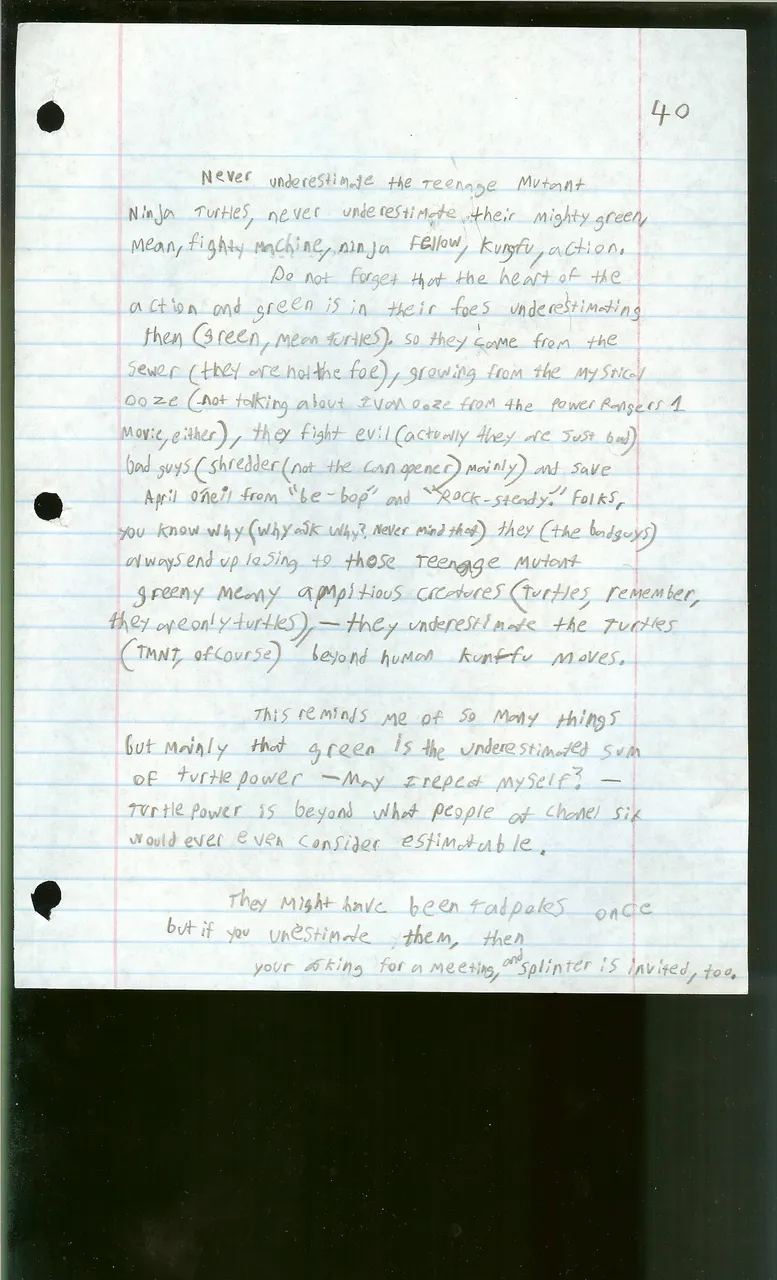 40
Never underestimate the Teenage Mutant
Ninja Turtles, never underestimate their mighty green,
mean, fighty machine, ninja fellow, kungfu, action.
Do not forget that the heart of the
action and green is in their foes underestimating
them (green, mean turtles). so they came from the
sewer (they are not the foe), growing from the mystical
ooze (not talking about Ivan ooze from the Power Rangers 1
Movie, either), they fight evil (actually they are just bad)
bad guys (shredder (not the can opener) mainly) and save
April oneil from "be-bop" and "Rock-steady." Folks,
you know why (why ask why? Never mind that) they (the badguys)
always end up losing to those Teenage mutant
greeny meany ampitious creatures (Turtles, remember,
they are only turtles), — they underestimate the Turtles
(TMNT, of course) beyond human kunffu moves.
This reminds me of so many things
but mainly that green is the underestimated sum
of turtle power — May I repeat myself? —
Turtle power is beyond what people at chanel six
would ever even consider estimatable.
They might have been tadpoles once
but if you unestimate them, then
your asking for a meeting, and splinter is invited, too.